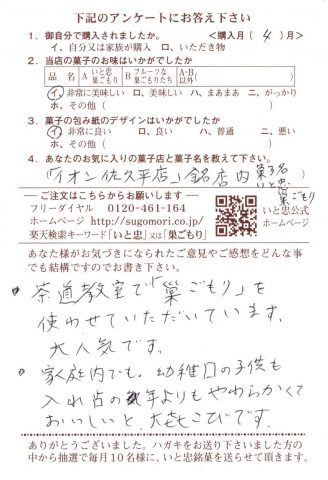 下記のアンケートにお答え下さい
1．御自分で購入されましたか。 <購入月（ 4 ）月>
イ、自分又は家族が購入 ロ、いただき物
2．当店の菓子のお味はいかがでしたか
品 名 A いと忠巣ごもり B フルーツな菓子たちは A・B以外( )
イ、非常に美味しい ロ、美味しい ハ、まあまあ ニ、がっかり
ホ、その他（ ）
3．菓子の包み紙のデザインはいかがでしたか
イ、非常に良い ロ、良い ハ、普通 ニ、悪い
ホ、その他（ ）
4．あなたのお気に入りの菓子店と菓子名を教えて下さい。
「イオン佐久平店」銘店内 菓子名
いと忠
巣ごもり
ご注文はこちらからお願いします
フリーダイヤル 0120-461-164
ホームページ http://sugomori.co.jp/
楽天検索キーワード「いと忠」又は「巣ごもり」
いと忠公式
ホームページ
あなた様がお気づきになられたご意見やご感想をどんな事
でも結構ですのでお書き下さい。
茶道教室で「巣ごもり」を
使わせていただいています。
大人気です。
家庭内でも、幼稚園の子供も
入れ歯の 年よりもやわらかくて
おいしいと、大よろこびです。
ありがとうございました。ハガキをお送り下さいました方の
中から抽選で毎月10名様に、いと忠銘菓を送らせて頂きます。